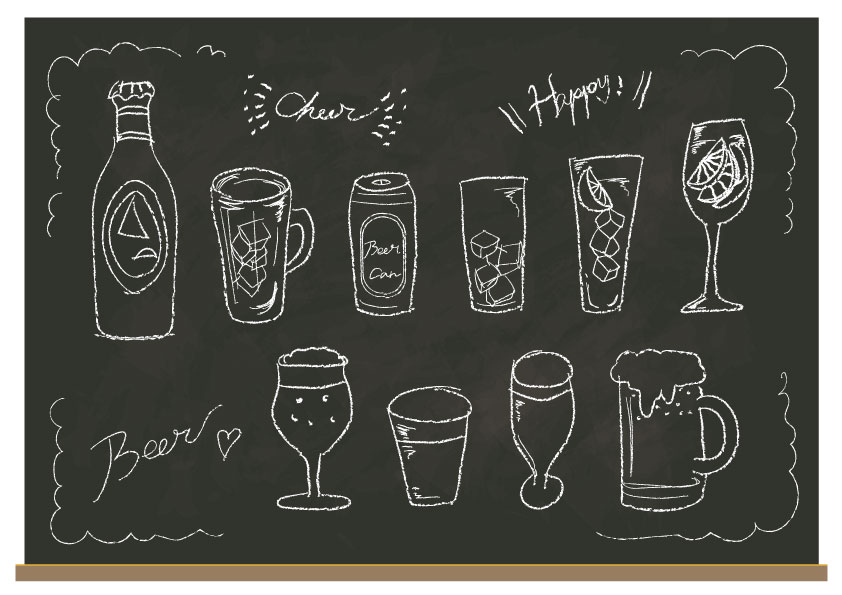 Cheer
Happy!
Beer
Can
Beer♡